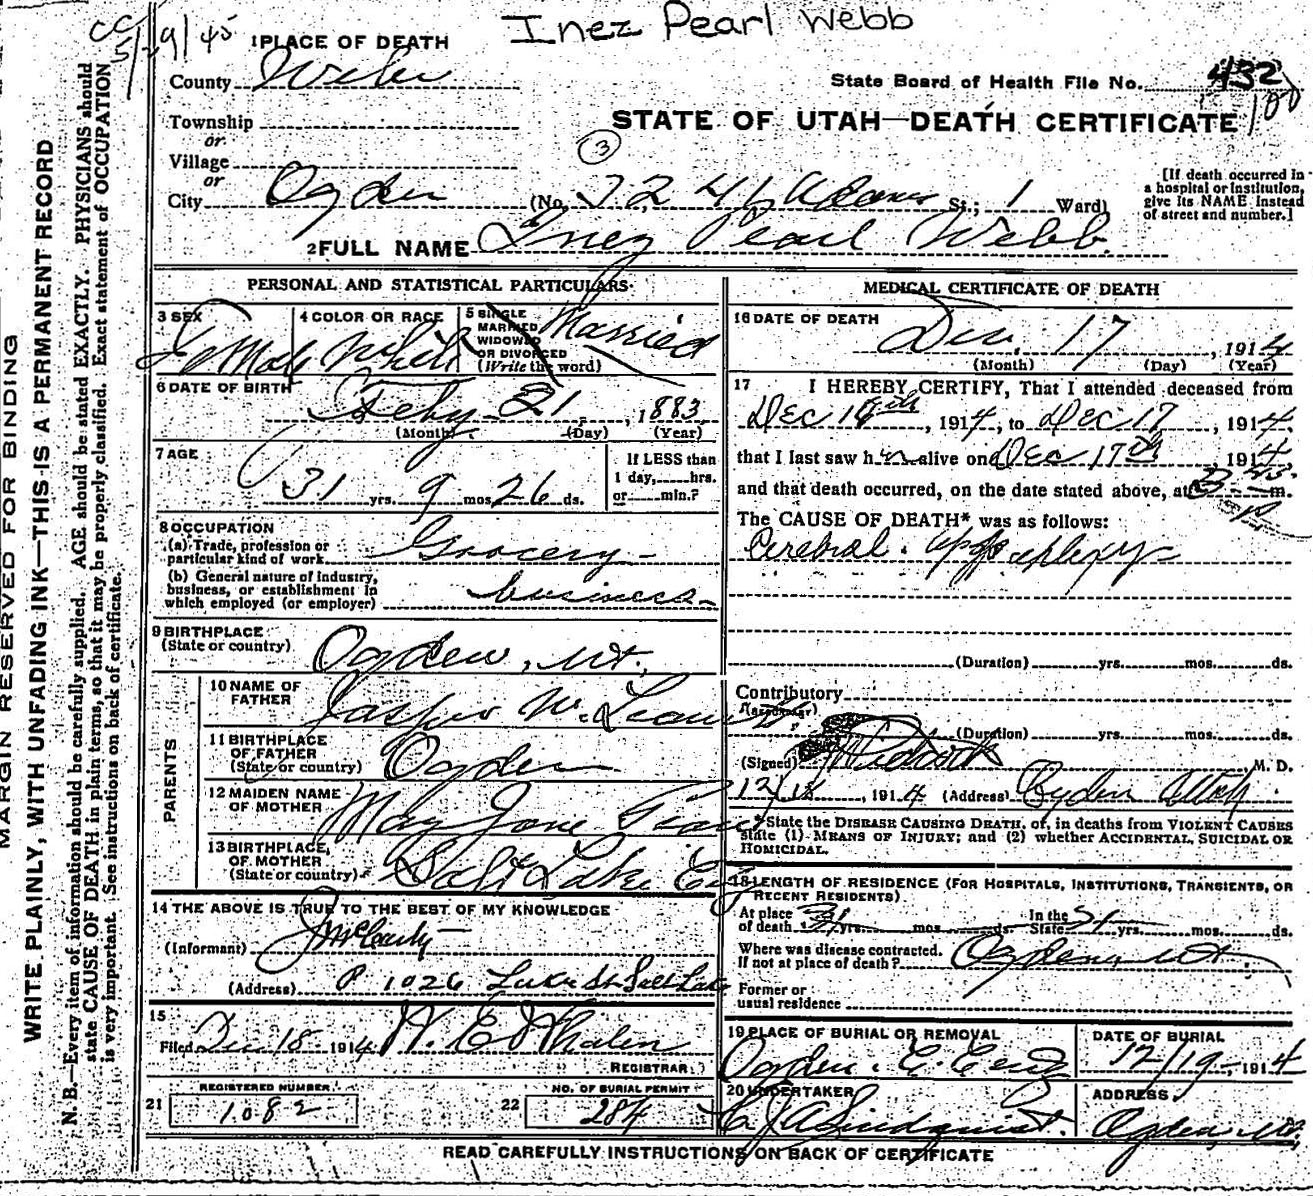 Inez Pearl Webb
5/29/45
1 PLACE OF DEATH
County Weber
State Board of Health File No. 432
Township
or
Village
or
City Ogden
STATE OF UTAH—DEATH CERTIFICATE
3
(No. Adams St.; 1 Ward)
[If death occurred in
a hospital or institution,
give its NAME instead
of street and number.]
2 FULL NAME Inez Pearl Webb
PERSONAL AND STATISTICAL PARTICULARS
3 SEX
Female
4 COLOR OR RACE
White
5 SINGLE
MARRIED
WIDOWED
OR DIVORCED
(Write the word)
Married
6 DATE OF BIRTH
Feby 21, 1883
(Month) (Day) (Year)
7 AGE
31 yrs. 9 mos. 26 ds.
If LESS than
1 day, hrs.
or min.?
8 OCCUPATION
(a) Trade, profession or
particular kind of work Grocery
(b) General nature of industry,
business, or establishment in
which employed (or employer) business
9 BIRTHPLACE
(State or country) Ogden, Ut.
PARENTS
10 NAME OF
FATHER
11 BIRTHPLACE
OF FATHER
(State or country) Ogden
12 MAIDEN NAME
OF MOTHER May Jane
13 BIRTHPLACE,
OF MOTHER
(State or country) Salt Lake City
14 THE ABOVE IS TRUE TO THE BEST OF MY KNOWLEDGE
(Informant)
(Address) 1026 Lake St Salt Lake
15
Filed Dec 18 1914 W. E. Whalen
REGISTRAR
21 REGISTERED NUMBER
1082
22 NO. OF BURIAL PERMIT
284
MEDICAL CERTIFICATE OF DEATH
16 DATE OF DEATH
Dec. 17, 1914
(Month) (Day) (Year)
17 I HEREBY CERTIFY, That I attended deceased from
Dec , 1914, to Dec 17, 1914,
that I last saw her alive on Dec 17th, 1914
and that death occurred, on the date stated above, at 3 m.
The CAUSE OF DEATH* was as follows:
Cerebral apoplexy
(Duration) yrs. mos. ds.
Contributory
(Secondary)
(Duration) yrs. mos. ds.
(Signed) M. D.
12/18, 1914 (Address) Ogden Utah.
*State the DISEASE CAUSING DEATH, or, in deaths from VIOLENT CAUSES
state (1) MEANS OF INJURY; and (2) whether ACCIDENTAL, SUICIDAL OR
HOMICIDAL.
18 LENGTH OF RESIDENCE (FOR HOSPITALS, INSTITUTIONS, TRANSIENTS, OR
RECENT RESIDENTS)
At place
of death 31 yrs. mos. ds. In the
State 31 yrs. mos. ds.
Where was disease contracted.
If not at place of death? Ogden, Ut
Former or
usual residence
19 PLACE OF BURIAL OR REMOVAL
Ogden
DATE OF BURIAL
12/19 1914
20 UNDERTAKER
Lindquist.
ADDRESS
Ogden, Ut
READ CAREFULLY INSTRUCTIONS ON BACK OF CERTIFICATE
MARGIN RESERVED FOR BINDING
WRITE PLAINLY, WITH UNFADING INK—THIS IS A PERMANENT RECORD
N. B.—Every item of information should be carefully supplied. AGE should be stated EXACTLY. PHYSICIANS should
state CAUSE OF DEATH in plain terms, so that it may be properly classified. Exact statement of OCCUPATION
is very important. See instructions on back of certificate.